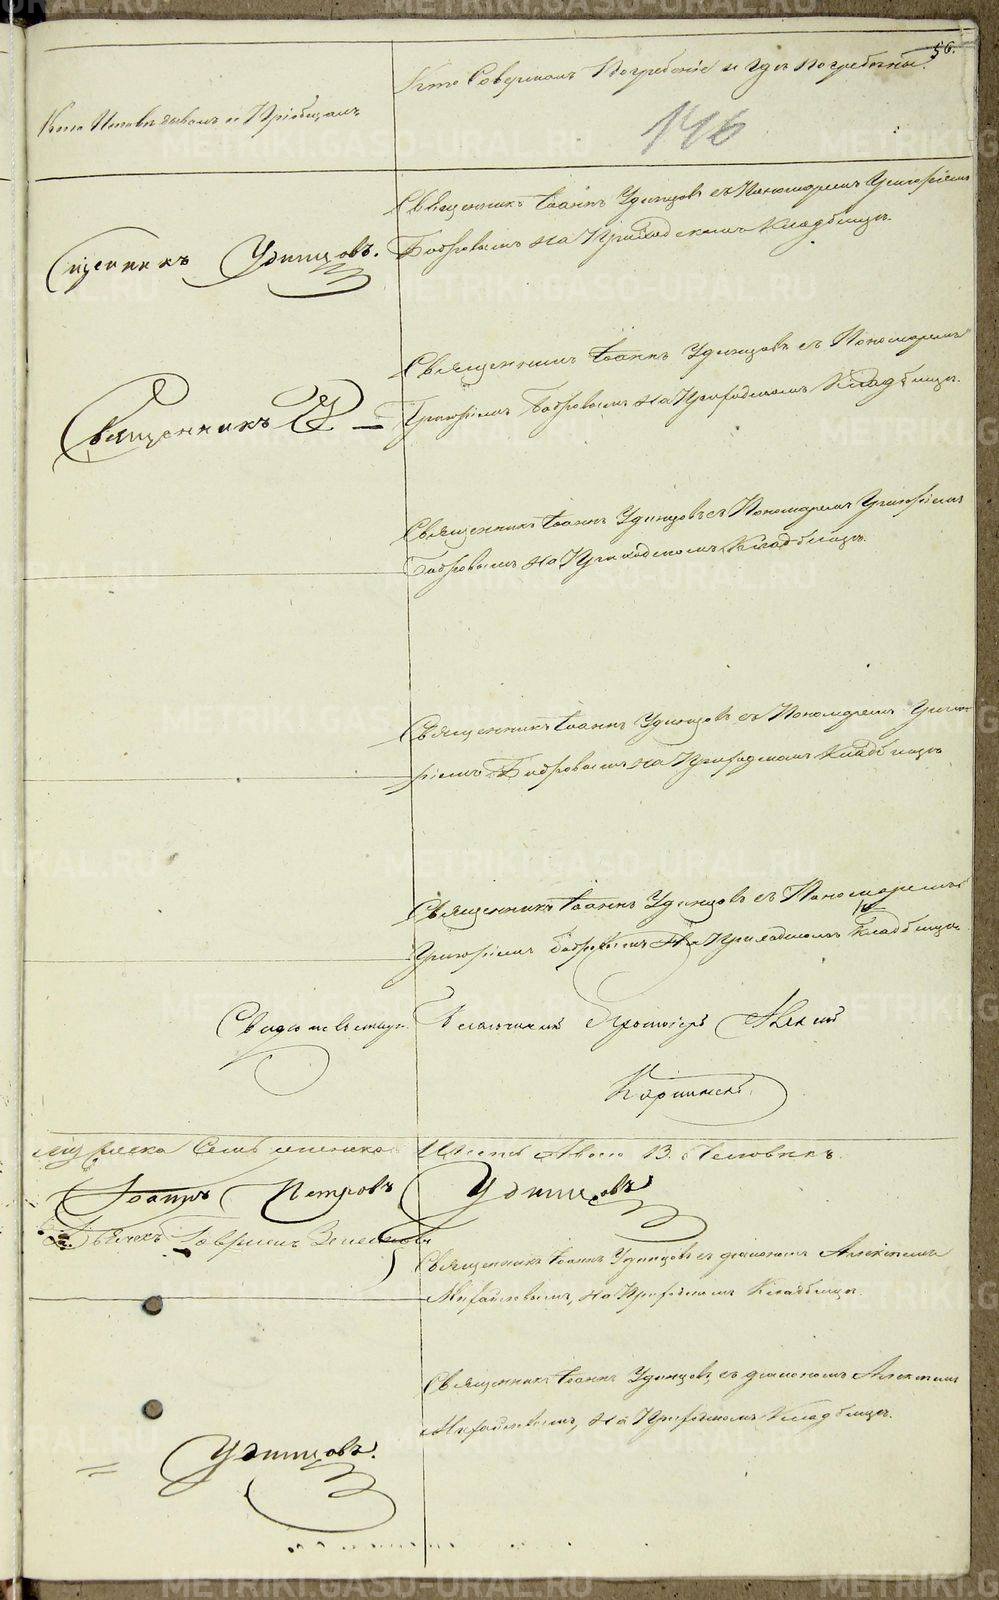 56.
Кто Исповѣдывалъ и Пріобщалъ
Кто Совершалъ Погребеніе и Гдѣ Погребены.
146
Священникъ Іоаннъ Удинцовъ съ Пономаремъ Григоріемъ
Бобровымъ на Приходскомъ Кладбищѣ.
Священникъ Удинцовъ.
Священникъ Іоаннъ Удинцовъ съ Пономаремъ
Григоріемъ Бобровымъ на Приходскомъ Кладбищѣ.
Священникъ У
Священникъ Іоаннъ Удинцовъ съ Пономаремъ Григоріемъ
Бобровымъ на Приходскомъ Кладбищѣ.
Священникъ Іоаннъ Удинцовъ съ Пономаремъ Григо-
ріемъ Бобровымъ на Приходскомъ Кладбищѣ
Священникъ Іоаннъ Удинцовъ съ Пономаремъ
Григоріемъ Бобровымъ на Приходскомъ Кладбищѣ.
Свидѣтельствуи. Благочинный Протоіерей Алексій
Карпинскій.
мужеска Семь женска Шесть Обоего 13. Человѣкъ.
Іоаннъ Петровъ Удинцовъ
Дьячекъ Гавріилъ
Священникъ Іоаннъ Удинцовъ съ діакономъ Алексѣемъ
Михайловымъ, на Приходскомъ Кладбищѣ.
Священникъ Іоаннъ Удинцовъ съ діакономъ Алексѣемъ
Михайловымъ, на Приходскомъ Кладбищѣ.
Удинцовъ.
METRIKI.GASO-URAL.RU